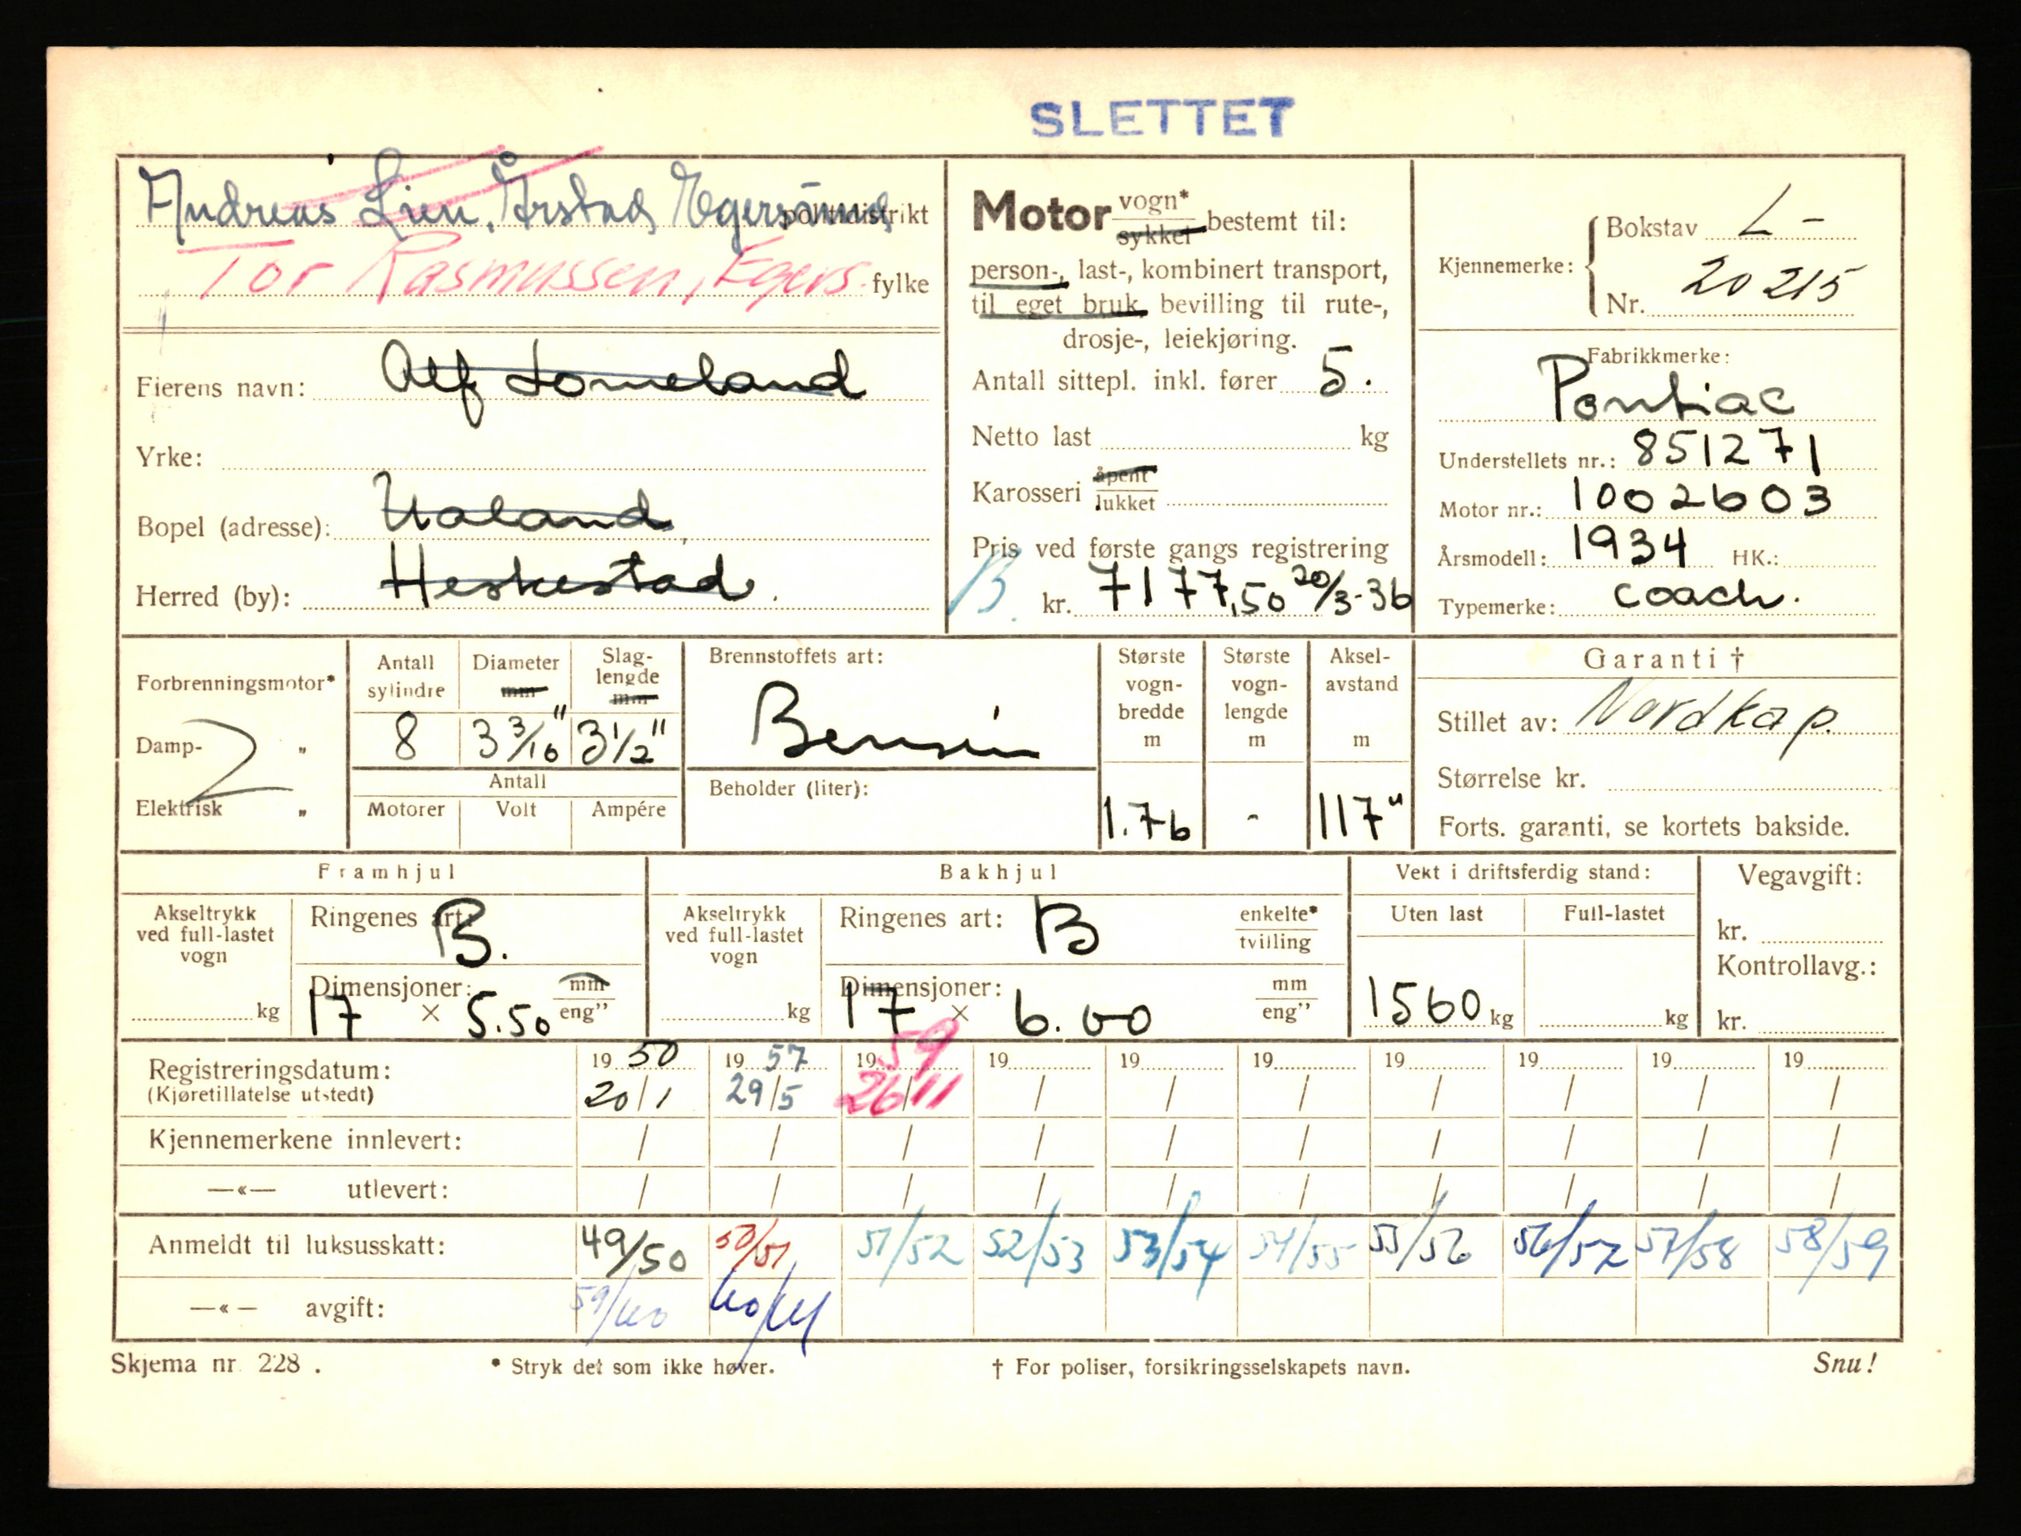 SLETTET
Andreas Lien, Årstad, Egersund politidistrikt
Tor Rasmussen, Egers. fylke
Eierens navn: Alf Lomeland
Yrke:
Bopel (adresse): Ualand,
Herred (by): Heskestad.
Motor vogn* sykkel bestemt til:
person-, last-, kombinert transport,
til eget bruk, bevilling til rute-,
drosje-, leiekjøring.
Antall sittepl. inkl. fører 5.
Netto last kg
Karosseri åpent lukket
Pris ved første gangs registrering
B. kr. 7177,50 20/3-36
Kjennemerke: Bokstav L-
Nr. 20215
Fabrikkmerke:
Pontiac
Understellets nr.: 851271
Motor nr.: 1002603
Årsmodell: 1934 HK.:
Typemerke: coach.
Forbrenningsmotor*
Damp- "
Elektrisk "
2
Antall sylindre 8
Diameter mm 3 3/16"
Slaglengde mm 3 1/2"
Antall
Motorer Volt Ampére
Brennstoffets art:
Bensin
Beholder (liter):
Største vognbredde m 1.76
Største vognlengde m -
Akselavstand m 117"
Garanti †
Stillet av: Nordkap.
Størrelse kr.
Forts. garanti, se kortets bakside.
Framhjul
Akseltrykk ved full-lastet vogn kg
Ringenes art: B.
Dimensjoner: 17 × 5.50 mm eng"
Bakhjul
Akseltrykk ved full-lastet vogn kg
Ringenes art: B enkelte* tvilling
Dimensjoner: 17 × 6.00 mm eng"
Vekt i driftsferdig stand:
Uten last Full-lastet
1560 kg kg
Vegavgift:
kr.
Kontrollavg.:
kr.
Registreringsdatum: 19 50 19 57 19 59 19 19 19 19 19 19 19
(Kjøretillatelse utstedt) 20/1 29/5 26/11 / / / / / / /
Kjennemerkene innlevert: / / / / / / / / / /
—«— utlevert: / / / / / / / / / /
Anmeldt til luksusskatt: 49/50 50/51 51/52 52/53 53/54 54/55 55/56 56/57 57/58 58/59
—«— avgift: 59/60 60/61
Skjema nr. 228. * Stryk det som ikke høver. † For poliser, forsikringsselskapets navn. Snu!